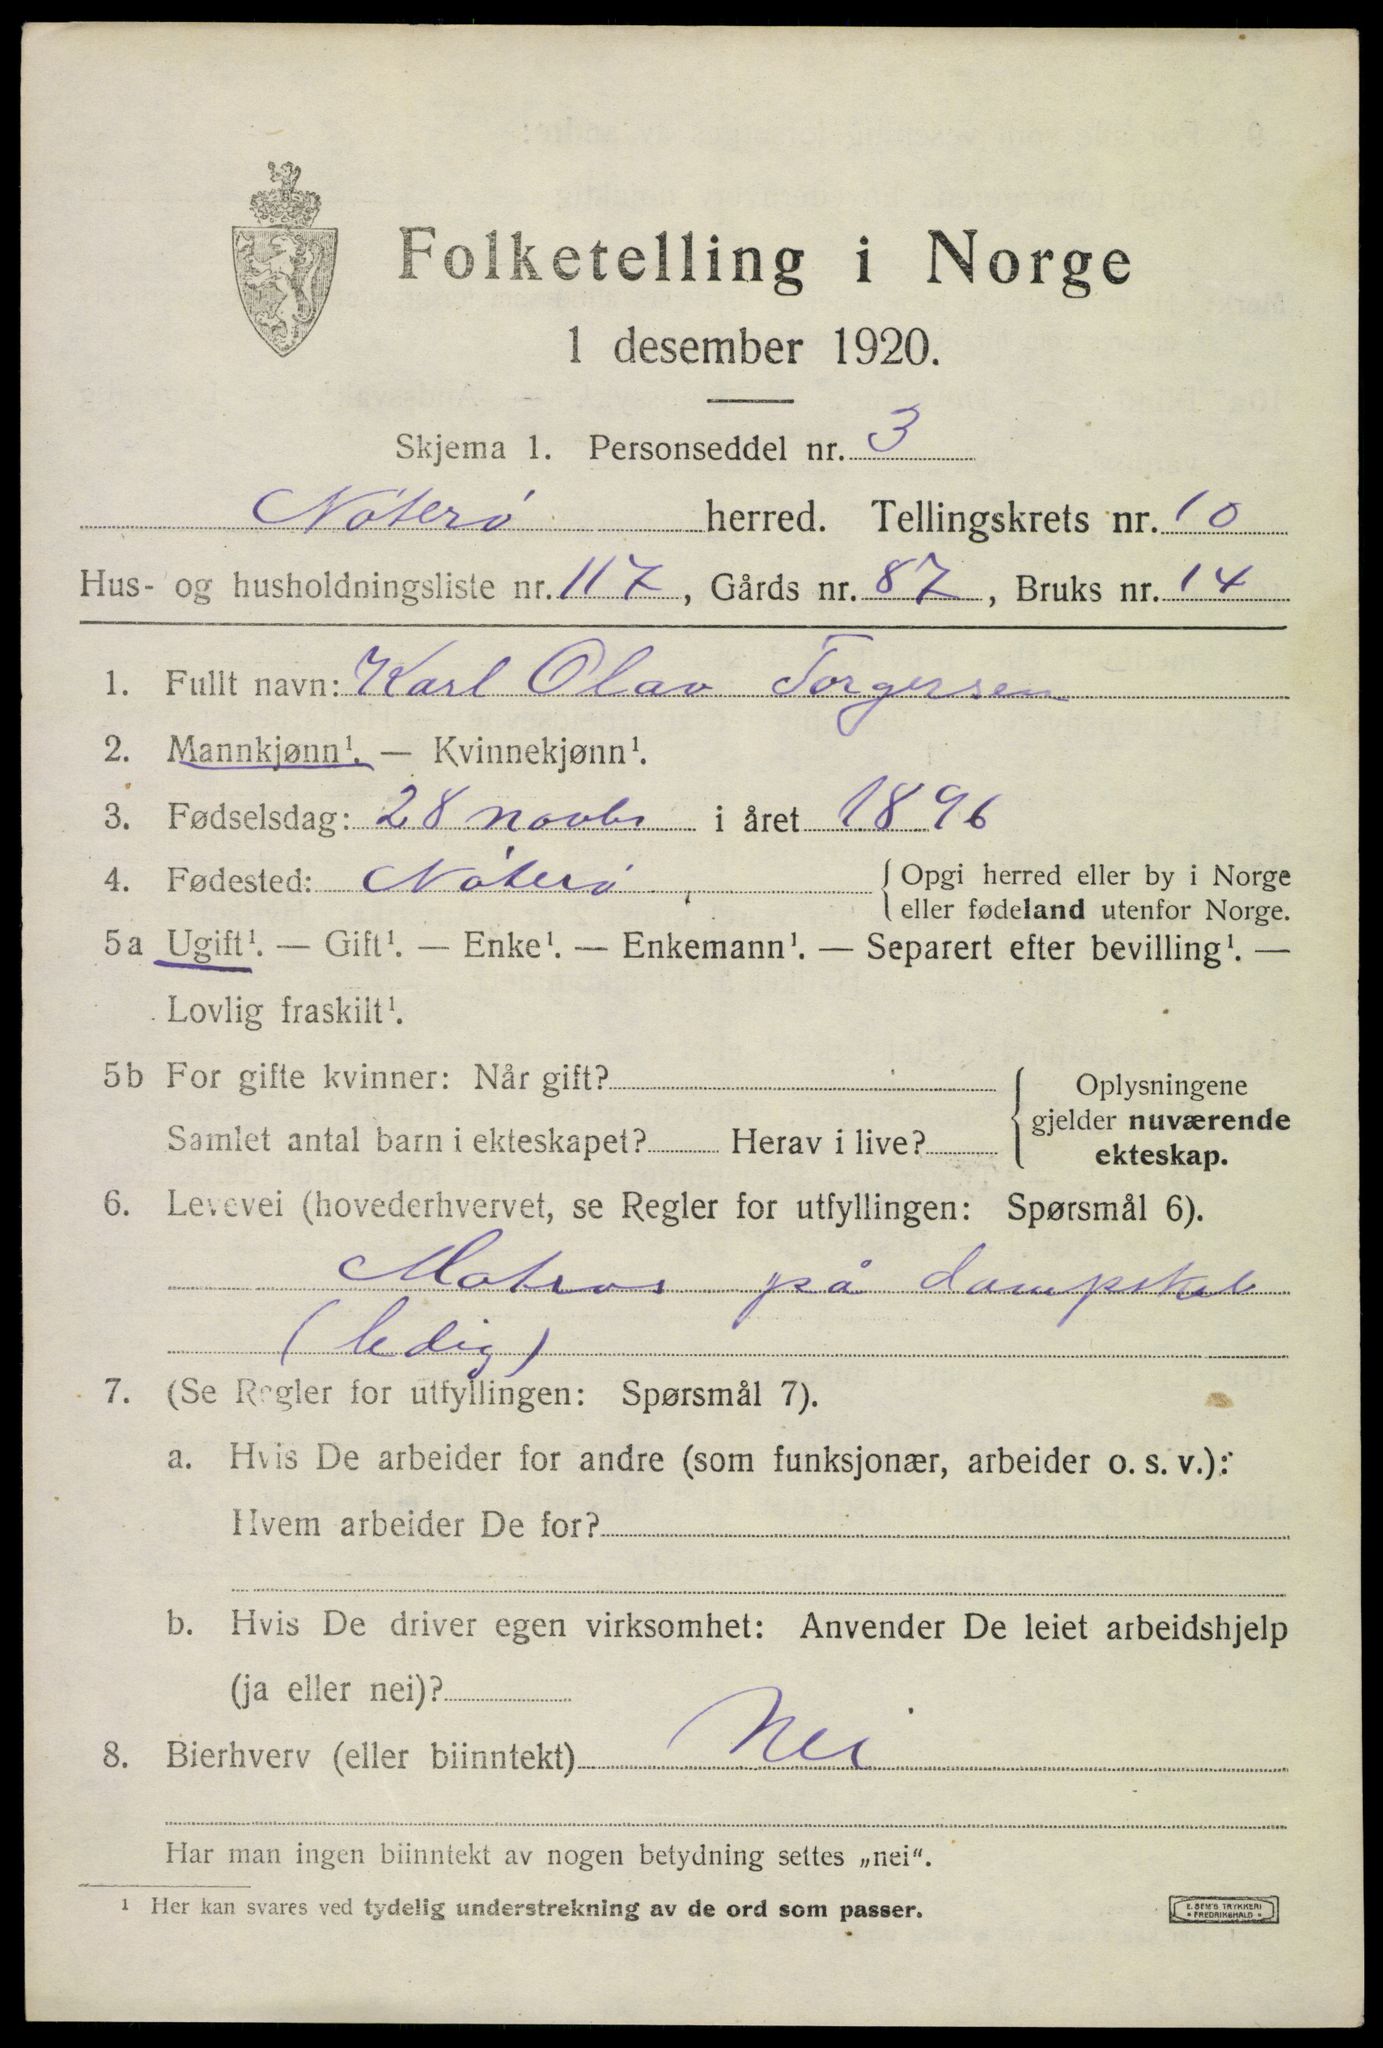 Folketelling i Norge
1 desember 1920.
Skjema 1. Personseddel nr. 3
Nøterø herred. Tellingskrets nr. 10
Hus- og husholdningsliste nr. 117, Gårds nr. 87, Bruks nr. 14
1. Fullt navn: Karl Olav Torgersen
2. Mannkjønn¹. — Kvinnekjønn¹.
3. Fødselsdag: 28 novbr i året 1896
4. Fødested: Nøterø { Opgi herred eller by i Norge
eller fødeland utenfor Norge.
5a Ugift¹. — Gift¹. — Enke¹. — Enkemann¹. — Separert efter bevilling¹. —
Lovlig fraskilt¹.
5b For gifte kvinner: Når gift? { Oplysningene
gjelder nuværende
Samlet antal barn i ekteskapet? Herav i live? ekteskap.
6. Levevei (hovederhvervet, se Regler for utfyllingen: Spørsmål 6).
Matros på dampskib
(ledig)
7. (Se Regler for utfyllingen: Spørsmål 7).
a. Hvis De arbeider for andre (som funksjonær, arbeider o. s. v.):
Hvem arbeider De for?
b. Hvis De driver egen virksomhet: Anvender De leiet arbeidshjelp
(ja eller nei)?
8. Bierhverv (eller biinntekt) Nei
Har man ingen biinntekt av nogen betydning settes „nei“.
¹ Her kan svares ved tydelig understrekning av de ord som passer.
E. SEM'S TRYKKERI
FREDRIKSHALD